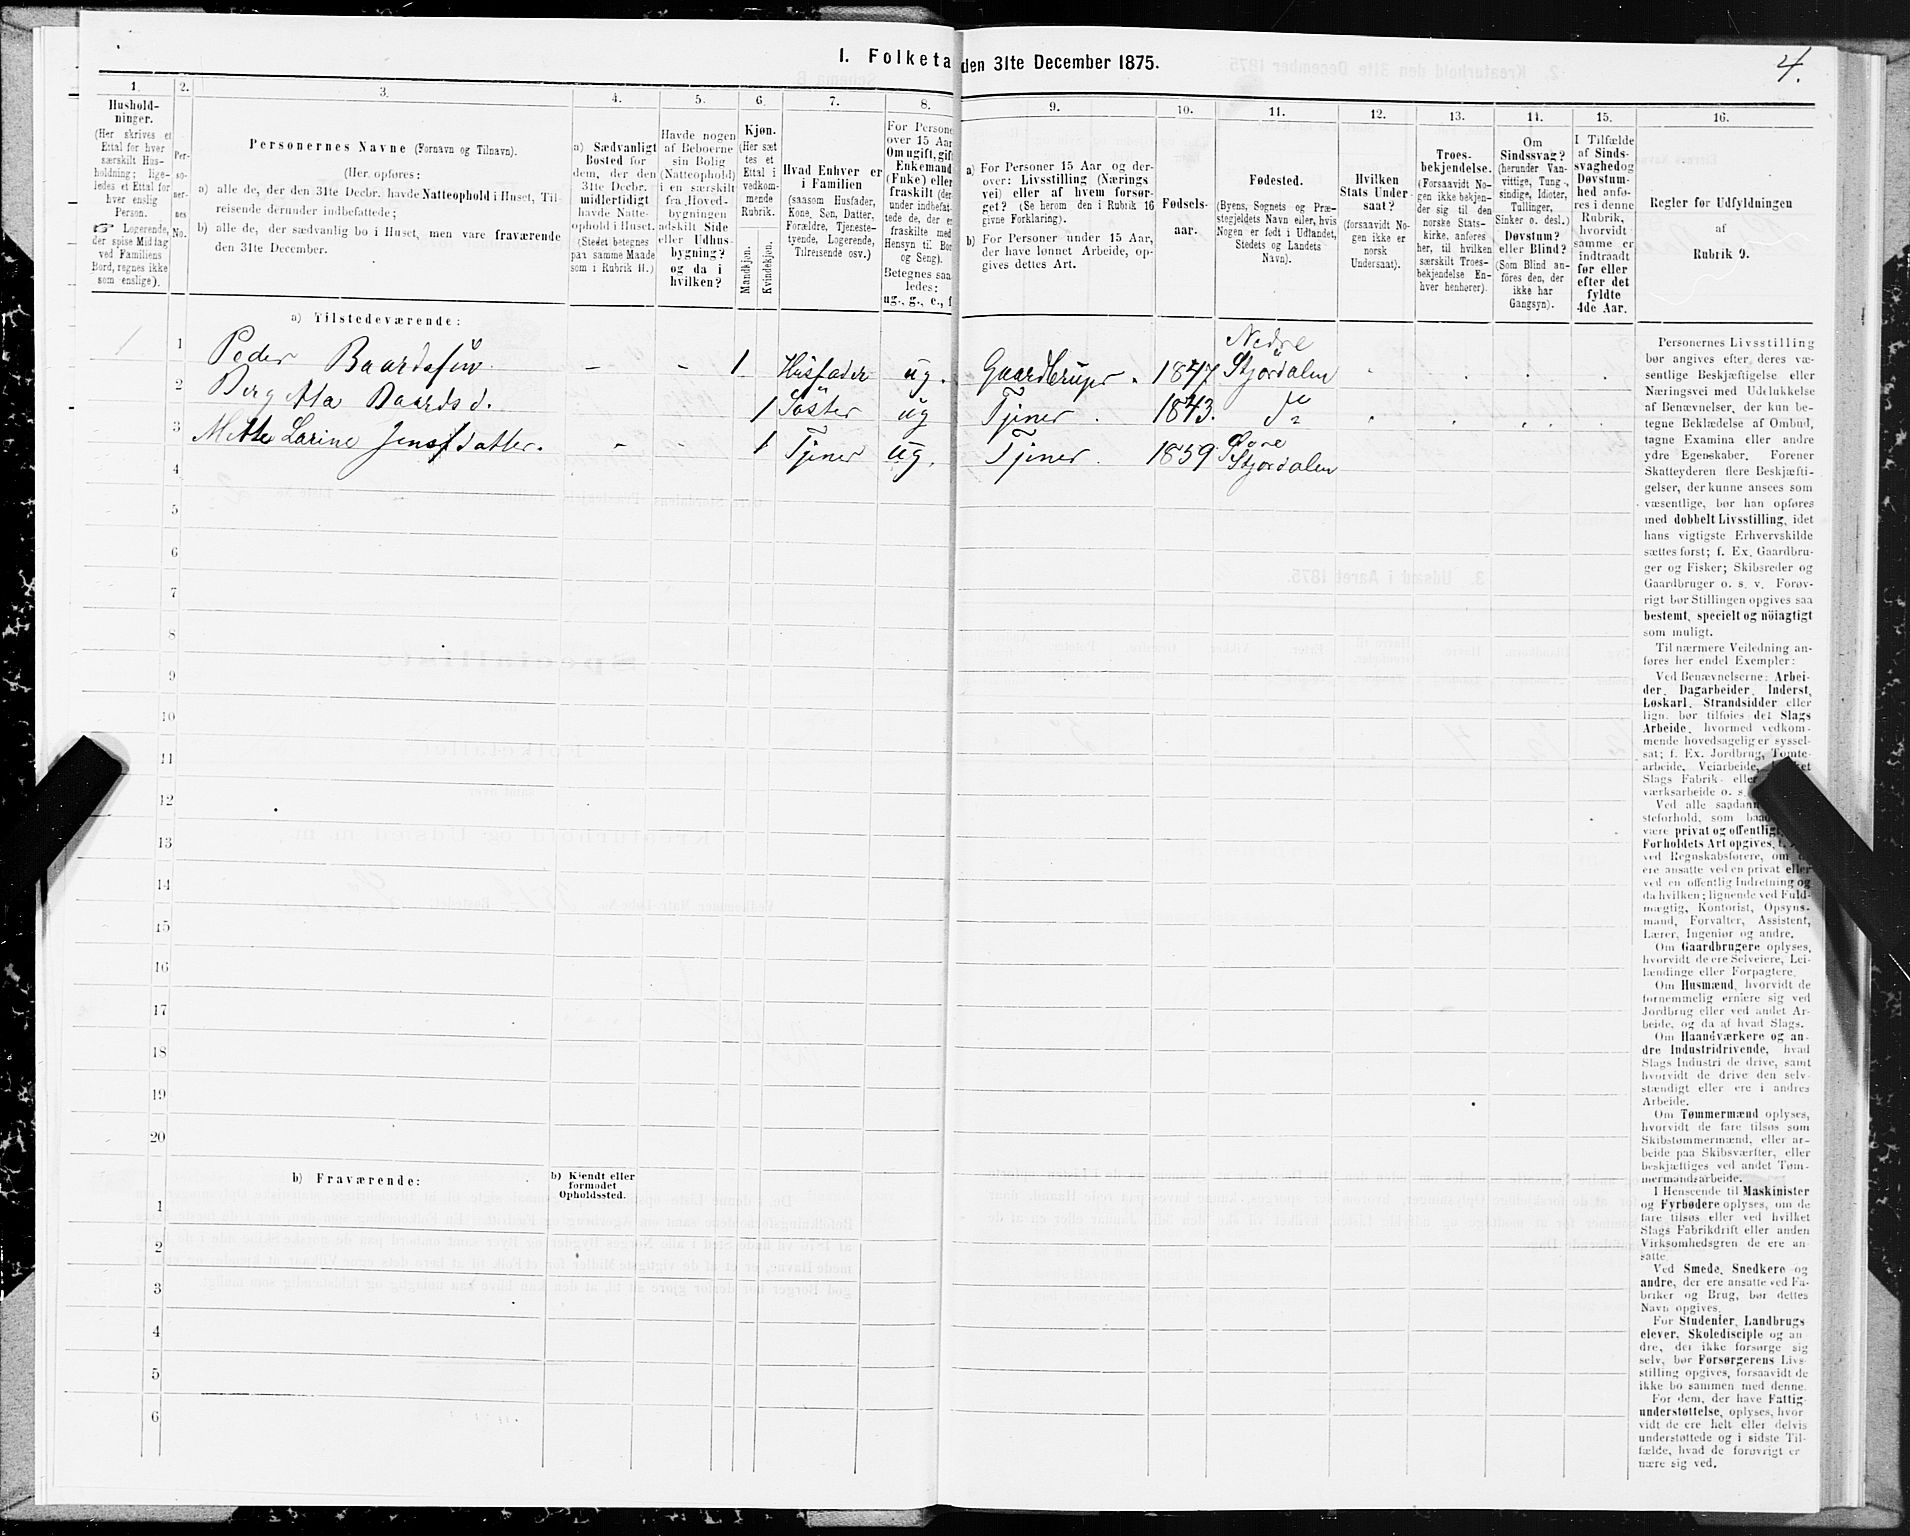 I. Folketa
den 31te December 1875.
4.
1.
2.
3.
4.
5.
6.
7.
8.
9.
10.
11.
12.
13.
14.
15.
16.
Hushold-
ninger.
(Her skrives et
Ettal for hver
særskilt Hus-
holdning; lige-
ledes et Ettal for
hver enslig
Person.
☞ Logerende,
der spise Middag
ved Familiens
Bord, regnes ikke
som enslige).
Per-
so-
ner-
nes
No.
Personernes Navne (Fornavn og Tilnavn).
(Her opføres:
a) alle de, der den 31te Decbr. havde Natteophold i Huset, Til-
reisende derunder indbefattede;
b) alle de, der sædvanlig bo i Huset, men vare fraværende
den 31te December.
a) Sædvanligt
Bosted for
dem, der den
31te Decbr.
midlertidigt
havde Natte-
ophold i Huset.
(Stedet betegnes
paa samme Maade
som i Rubrik 11.)
Havde nogen
af Beboerne
sin Bolig
(Natteophold)
i en særskilt
fra Hoved-
bygningen
adskilt Side
eller Udhus-
bygning?
og da i
hvilken?
Kjøn.
(Her sæt
tes et
Ettal i
vedkom-
mende
Rubrik.
Mandkjøn.
Kvindekjøn.
Hvad Enhver er
i Familien
(saasom Husfader,
Kone, Søn, Datter,
Forældre, Tjeneste-
tyende, Logerende,
Tilreisende osv.)
For Persone
over 15 Aar
Om ugift, gift
Enkemand
(Enke) eller
fraskilt (der
under indbefat
tede de, der e
fraskilte med
Hensyn til Bor
og Seng).
Betegnes saa
ledes:
ug., g., e., f
a) For Personer 15 Aar og der-
over: Livsstilling (Nærings
vei) eller af hvem forsør-
get? (Se herom den i Rubrik 16
givne Forklaring).
b) For Personer under 15 Aar,
der have lønnet Arbeide, op-
gives dettes Art.
Fødsels-
aar.
Fødested.
(Byens, Sognets og Præ-
stegjeldets Navn eller, hvis
Nogen er født i Udlandet,
Stedets og Landets
Navn).
Hvilken
Stats Under-
saat?
(forsaavidt No-
gen ikke er
norsk
Undersaat).
Troes-
bekjendelse.
(Forsaavidt No-
gen ikke bekjen-
der sig til den
norske Stats-
kirke, anføres
her, til hvilken
særskilt Troes-
bekjendelse En-
hver henhører).
Om
Sindssvag?
(herunder Van-
vittige, Tung-
sindige, Idioter,
Tullinger,
Sinker o. desl.)
Døvstum?
eller Blind?
(Som Blind an-
føres den, der
ikke har
Gangsyn).
I Tilfælde
af Sinds-
svaghed og
Døvstum-
hed anfø-
res i denne
Rubrik,
hvorvidt
samme er
indtraadt
før eller
efter det
fyldte
4de Aar.
Regler for Udfyldningen
af
Rubrik 9.
a) Tilstedeværende:
1 1 Peder Baardssøn. - - 1 Husfader ug. Gaardbruger. 1847. Nedre
Stjørdalen
2 Berg Ata Baardsd. 1 Søster ug Tjener. 1843. do
3 Mette Larine Jensdatter. - - 1 Tjener ug. Tjener. 1859. Øvre
Stjordalen
4
5
6
7
8
9
10
11
12
13
14
15
16
17
18
19
20
b) Fraværende:
b) Kjendt eller
formodet
Opholdssted.
1
2
3
4
5
6
Personernes Livsstilling
bør angives efter deres væ-
sentlige Beskjæftigelse eller
Næringsvei med Udelukkelse
af Benævnelser, der kun be-
tegne Beklædelse af Ombud,
tagne Examina eller andre
ydre Egenskaber. Forener
Skatteyderen flere Beskjæfti-
gelser, der kunne ansees som
væsentlige, bør han opføres
med dobbelt Livsstilling, idet
hans vigtigste Erhvervskilde
sættes først; f. Ex. Gaardbru-
ger og Fisker; Skibsreder og
Gaardbruger o. s. v. Forøv-
rigt bør Stillingen opgives saa
bestemt, specielt og nöiagtigt
som muligt.
Til nærmere Veiledning an-
føres her endel Exempler:
Ved Benævnelserne: Arbei-
der, Dagarbeider, Inderst,
Løskarl, Strandsidder eller
lign. bør tilføies det Slags
Arbeide, hvormed vedkom-
mende hovedsagelig er syssel-
sat; f. Ex. Jordbrug, Tomte-
arbeide, Veiarbeide,
Slags Fabrik- eller
værksarbeide o. s.
Ved alle saadan
steforhold, som baa
være privat og offentligt,
Forholdets Art opgives,
ved Regnskabsførere, om
ere ansatte ved en privat eller
ved en offentlig Indretning og
da hvilken; lignende ved Fuld-
mægtig, Kontorist, Opsyns-
mand, Forvalter, Assistent,
Lærer, Ingeniør og andre.
Om Gaardbrugere oplyses,
hvorvidt de ere Selveiere, Lei-
lændinge eller Forpagtere.
Om Husmænd, hvorvidt de
fornemmelig ernære sig ved
Jordbrug eller ved andet Ar-
beide, og da af hvad Slags.
Om Haandværkere og an-
dre Industridrivende, hvad
Slags Industri de drive, samt
hvorvidt de drive den selv-
stændigt eller ere i andres
Arbeide.
Om Tømmermænd oplyses,
hvorvidt de fare tilsøs som
Skibstømmermænd, eller ar-
beide paa Skibsværfter, eller
beskjæftiges ved andet Tøm-
mermandsarbeide.
I Henseende til Maskinister
og Fyrbødere oplyses, om de
fare tilsøs eller ved hvilket
Slags Fabrikdrift eller anden
Virksomhedsgren de ere an-
satte.
Ved Smede, Snedkere og
andre, der ere ansatte ved Fa-
briker og Brug, bør dettes
Navn opgives.
For Studenter, Landbrugs-
elever, Skoledisciple og an-
dre, der ikke forsørge sig
selv, bør Forsørgerens Livs-
stilling opgives, forsaavidt de
ikke bo sammen med denne.
For dem, der have Fattig-
understøttelse, oplyses, hvor-
vidt de ere helt eller delvis
understøttede og i sidste Til-
fælde, hvad de forøvrigt er
nære sig ved.